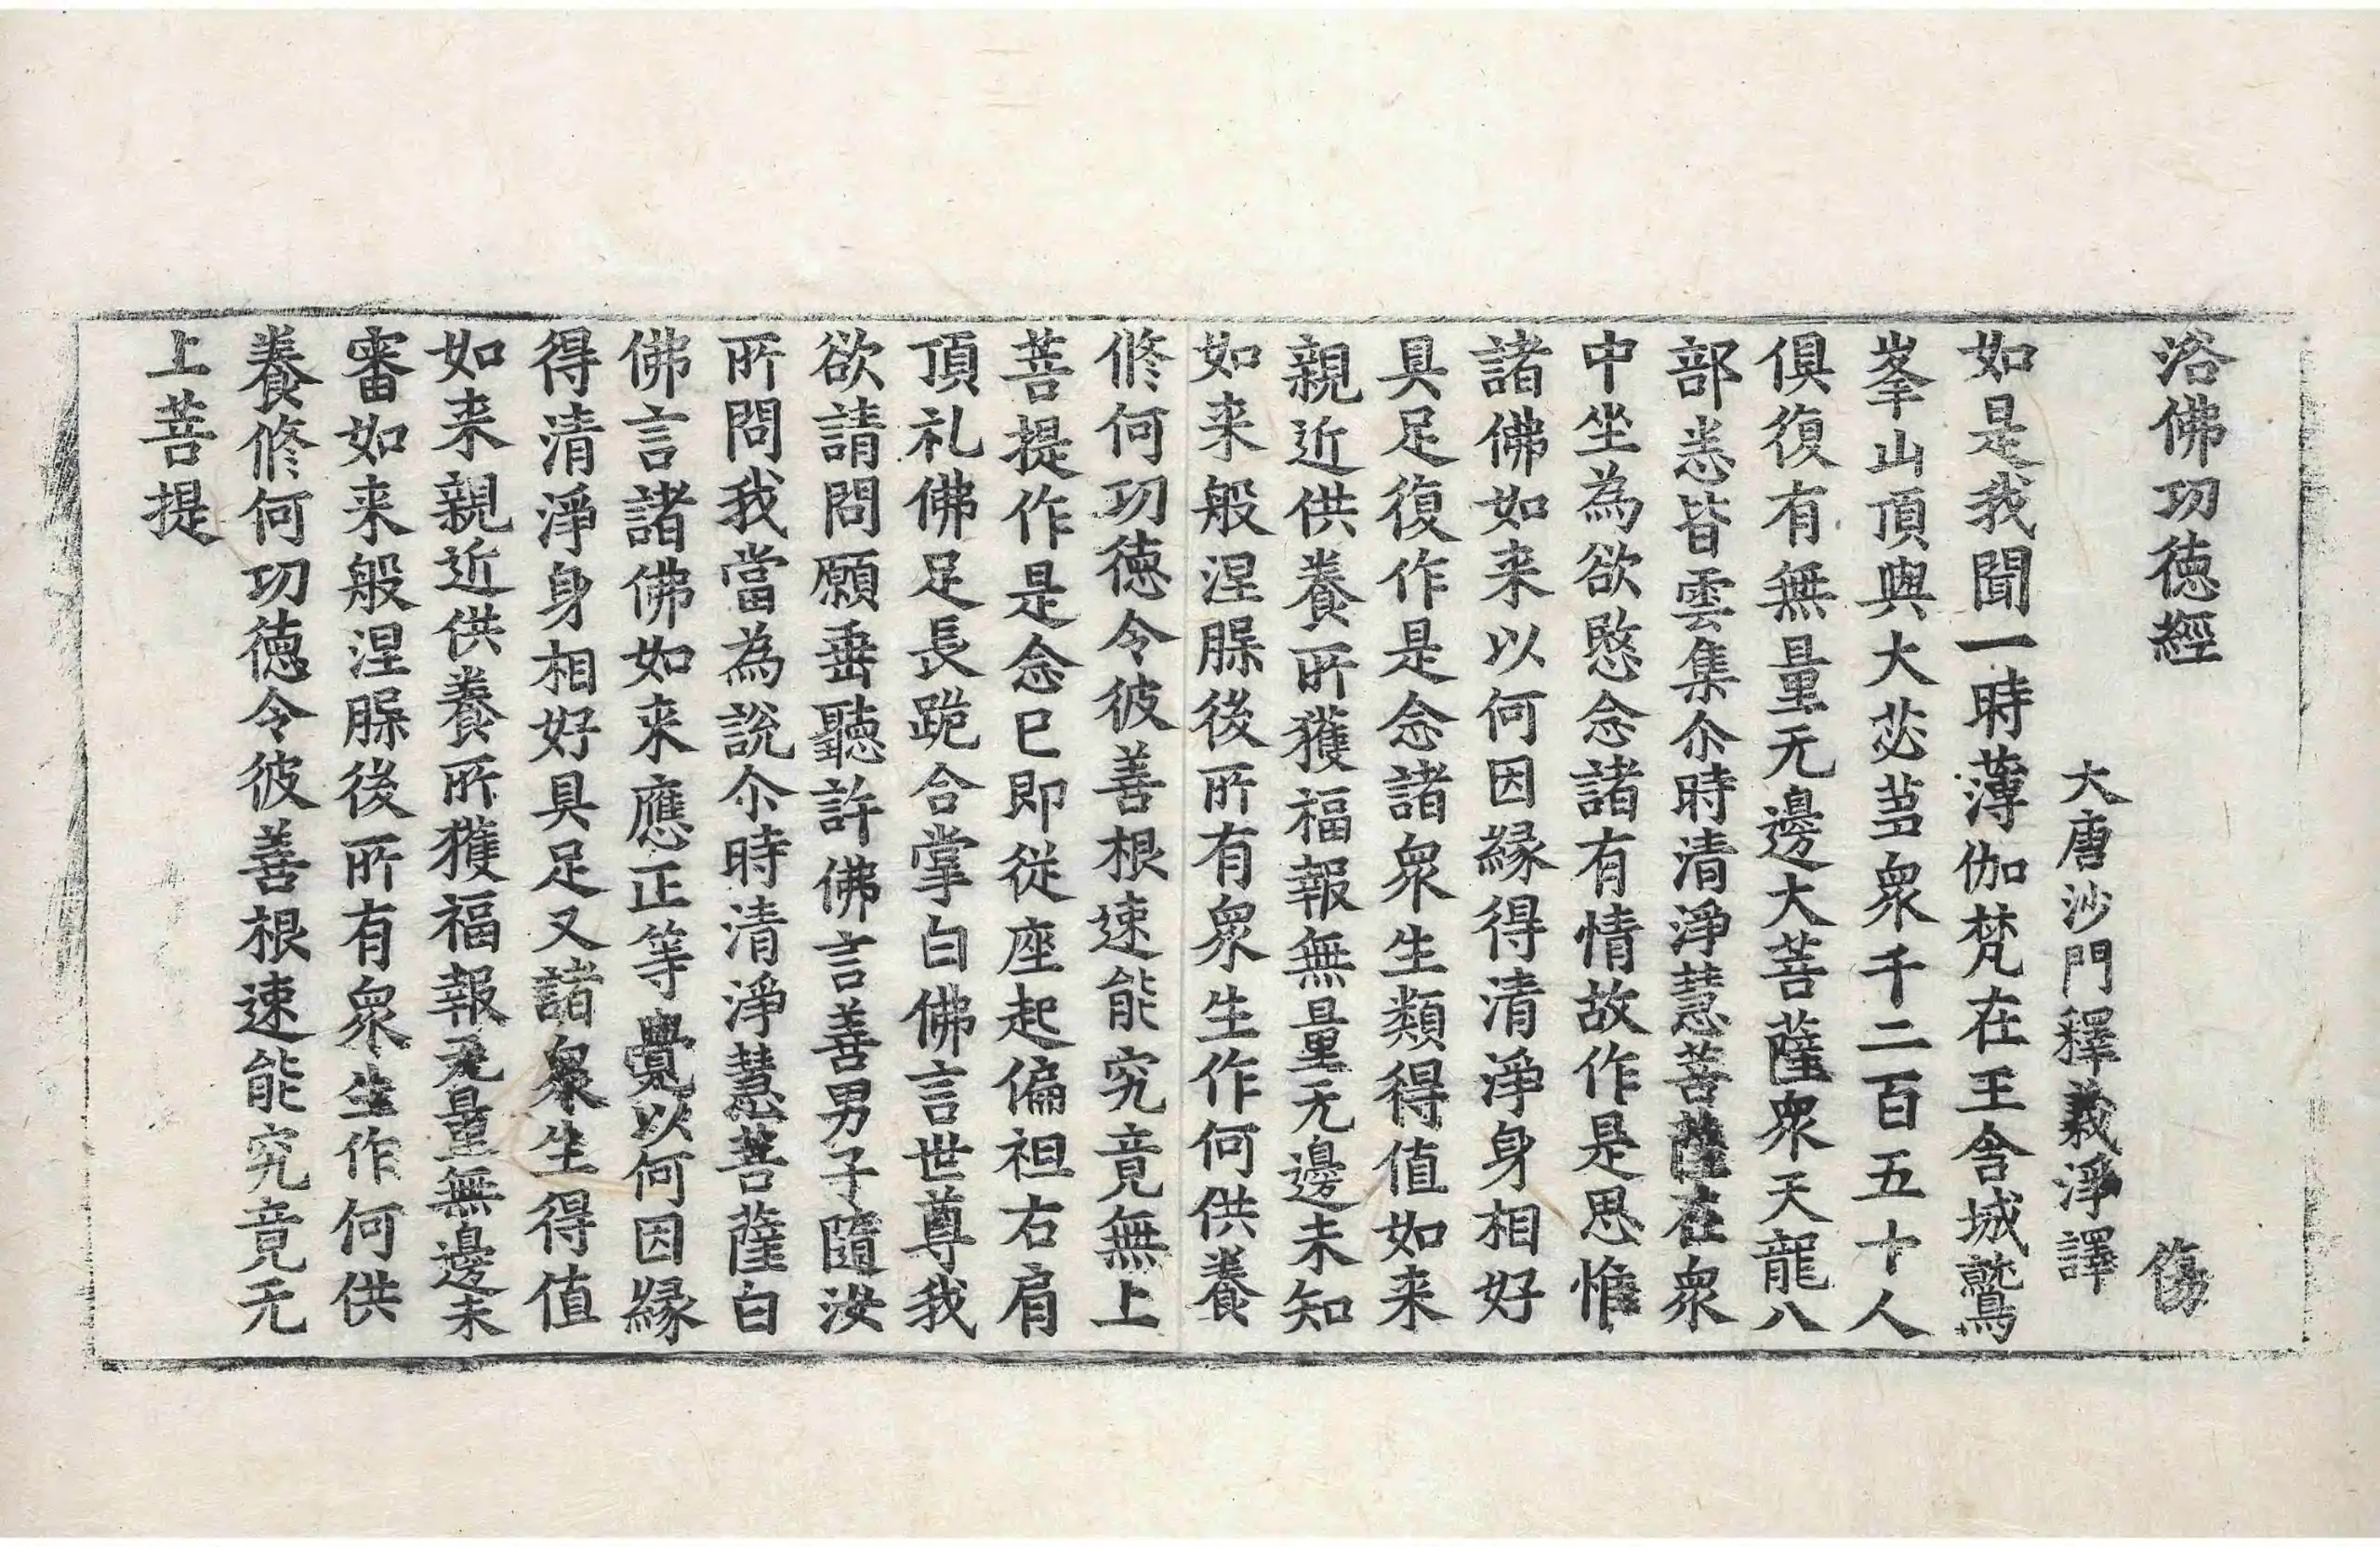 浴佛功徳經 傷
大唐沙門釋義淨譯
如是我聞一時薄伽梵在王舍城鷲
峯山頂與大苾蒭衆千二百五十人
俱復有無量无邊大菩薩衆天龍八
部悉皆雲集尒時清淨慧菩薩在衆
中坐為欲愍念諸有情故作是思惟
諸佛如来以何因縁得清淨身相好
具足復作是念諸衆生類得值如来
親近供養所獲福報無量无邊未知
如来般涅脲後所有衆生作何供養
修何功徳令彼善根速能究竟無上
菩提作是念已即從座起偏袒右肩
頂礼佛足長跪合掌白佛言世尊我
欲請問願垂聽許佛言善男子隨汝
所問我當為說尒時清淨慧菩薩白
佛言諸佛如来應正等覺以何因縁
得清淨身相好具足又諸衆生得值
如来親近供養所獲福報无量無邊未
審如来般涅脲後所有衆生作何供
養修何功徳令彼善根速能究竟无
上菩提